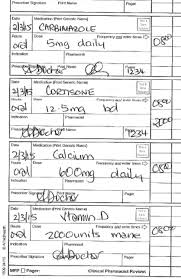 Prescriber Signature Print Name Pager
Date Medication (Print Generic Name)
2/3/15 CARBIMAZOLE
Route Dose Frequency and enter times
oral 5mg daily 0800
Indication Pharmacist
Prescriber Signature Print Name Pager
A Doctor 1234
Date Medication (Print Generic Name)
2/3/15 CORTISONE
Route Dose Frequency and enter times
oral 12.5mg bd 0800
2000
Indication Pharmacist
A Doctor 1234
Date Medication (Print Generic Name)
2/3/15 Calcium
Route Dose Frequency and enter times
oral 600mg daily 0800
Indication Pharmacist
Prescriber Signature Print Name Pager
A Doctor
Date Medication (Print Generic Name)
2/3/15 Vitamin D
Route Dose Frequency and enter times
oral 2000units mane 0800
Indication Pharmacist
Prescriber Signature Print Name Pager
A Doctor
Pager: Clinical Pharmacist Review